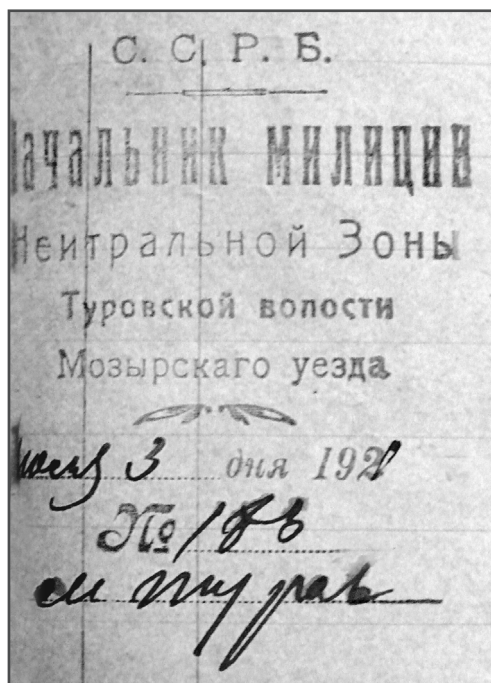 С. С. Р. Б.
Начальник милиции
Нейтральной Зоны
Туровской волости
Мозырскаго уезда
3 дня 1921
№ 183
м Туров